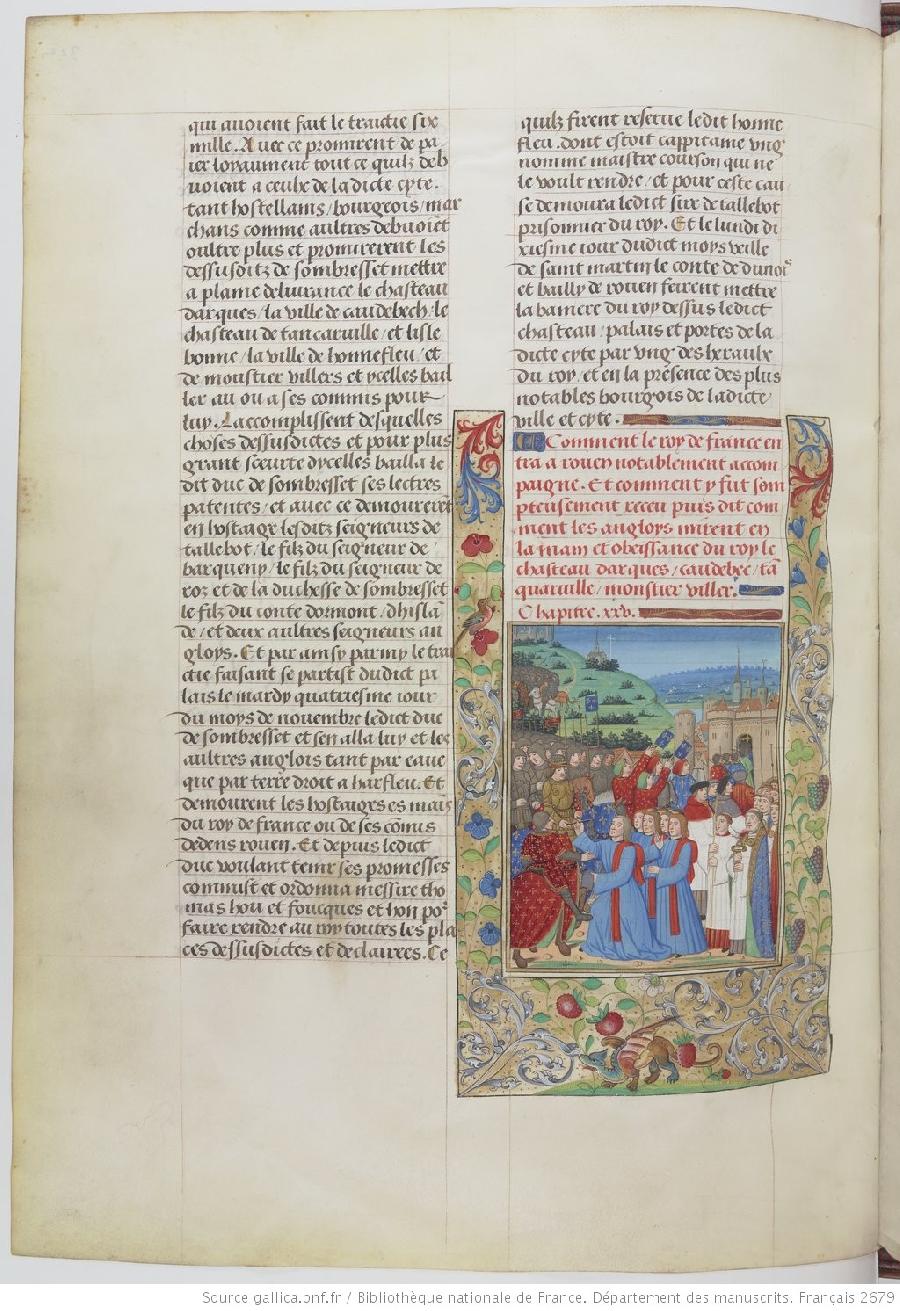 qui avoient fait le traictie six
mille. Avec ce promirent de pa
ier loyaument tout ce quilz deb
voient a ceulx de la dicte cyte.
tant hostellains / bourgeois / mar
chans comme aultres debvoiēt
oultre plus et promirerent les
dessusditz de sombresset mettre
a plaine delivrance le chasteau
darques / la ville de caudebech / le
chasteau de tancarville / et lisle
bonne / la ville de honnefleu / et
de moustier villers et ycelles bail
ler au ou a ses commis pour
luy. Laccomplissent desquelles
choses dessusdictes et pour plus
grant sceurte dycelles bailla le
dit duc de sombresset ses lectres
patentes / et avec ce demourerēt
en hostaige lesditz seigneurs de
tallebot / le filz du seigneur de
barqueny / le filz du seigneur de
roz et de la duchesse de sombresset
le filz du conte dormont / dhislā
de / et deux aultres seigneurs an
gloys. Et par ainsy parmy le trai
ctie faisant se partist dudict pa
lais le mardy quatriesme jour
du moys de novembre ledict duc
de sombresset et sen alla luy et les
aultres anglois tant par eaue
que par terre droit a harfleu. Et
demourent les hostaiges es mais
du roy de france ou de ses cōmis
dedens rouen. Et depuis ledict
duc voulant tenir ses promesses
commist et ordonna messire tho
mas hou et foucques et hon poʳ
faire rendre au roy toutes les pla
ces dessusdictes et declairees. Ce
quilz firent reserve ledit honne
fleu. dont estoit cappitaine ung
nomme maistre courson qui ne
le voult rendre / et pour ceste cau
se demoura ledict sire de tallebot
prisonnier du roy. Et le lundi di
xiesme jour dudict moys veille
de saint martin le conte de dunoiˢ
et bailly de rouen feirent mettre
la baniere du roy dessus ledict
chasteau / palais et portes de la
dicte cyte par ung des heraulx
du roy / et en la presence des plus
notables bourgois de ladicte
ville et cyte.
Comment le roy de france en
tra a rouen notablement accom
paigne. Et comment y fut som
ptueusement receu puis dit com
ment les angloys mirent en
la main et obeissance du roy le
chasteau darques / caudebec / tā
quarville / monstier viller.
Chapitre. xxv.
Source gallica.bnf.fr / Bibliothèque nationale de France. Département des manuscrits. Français 2679